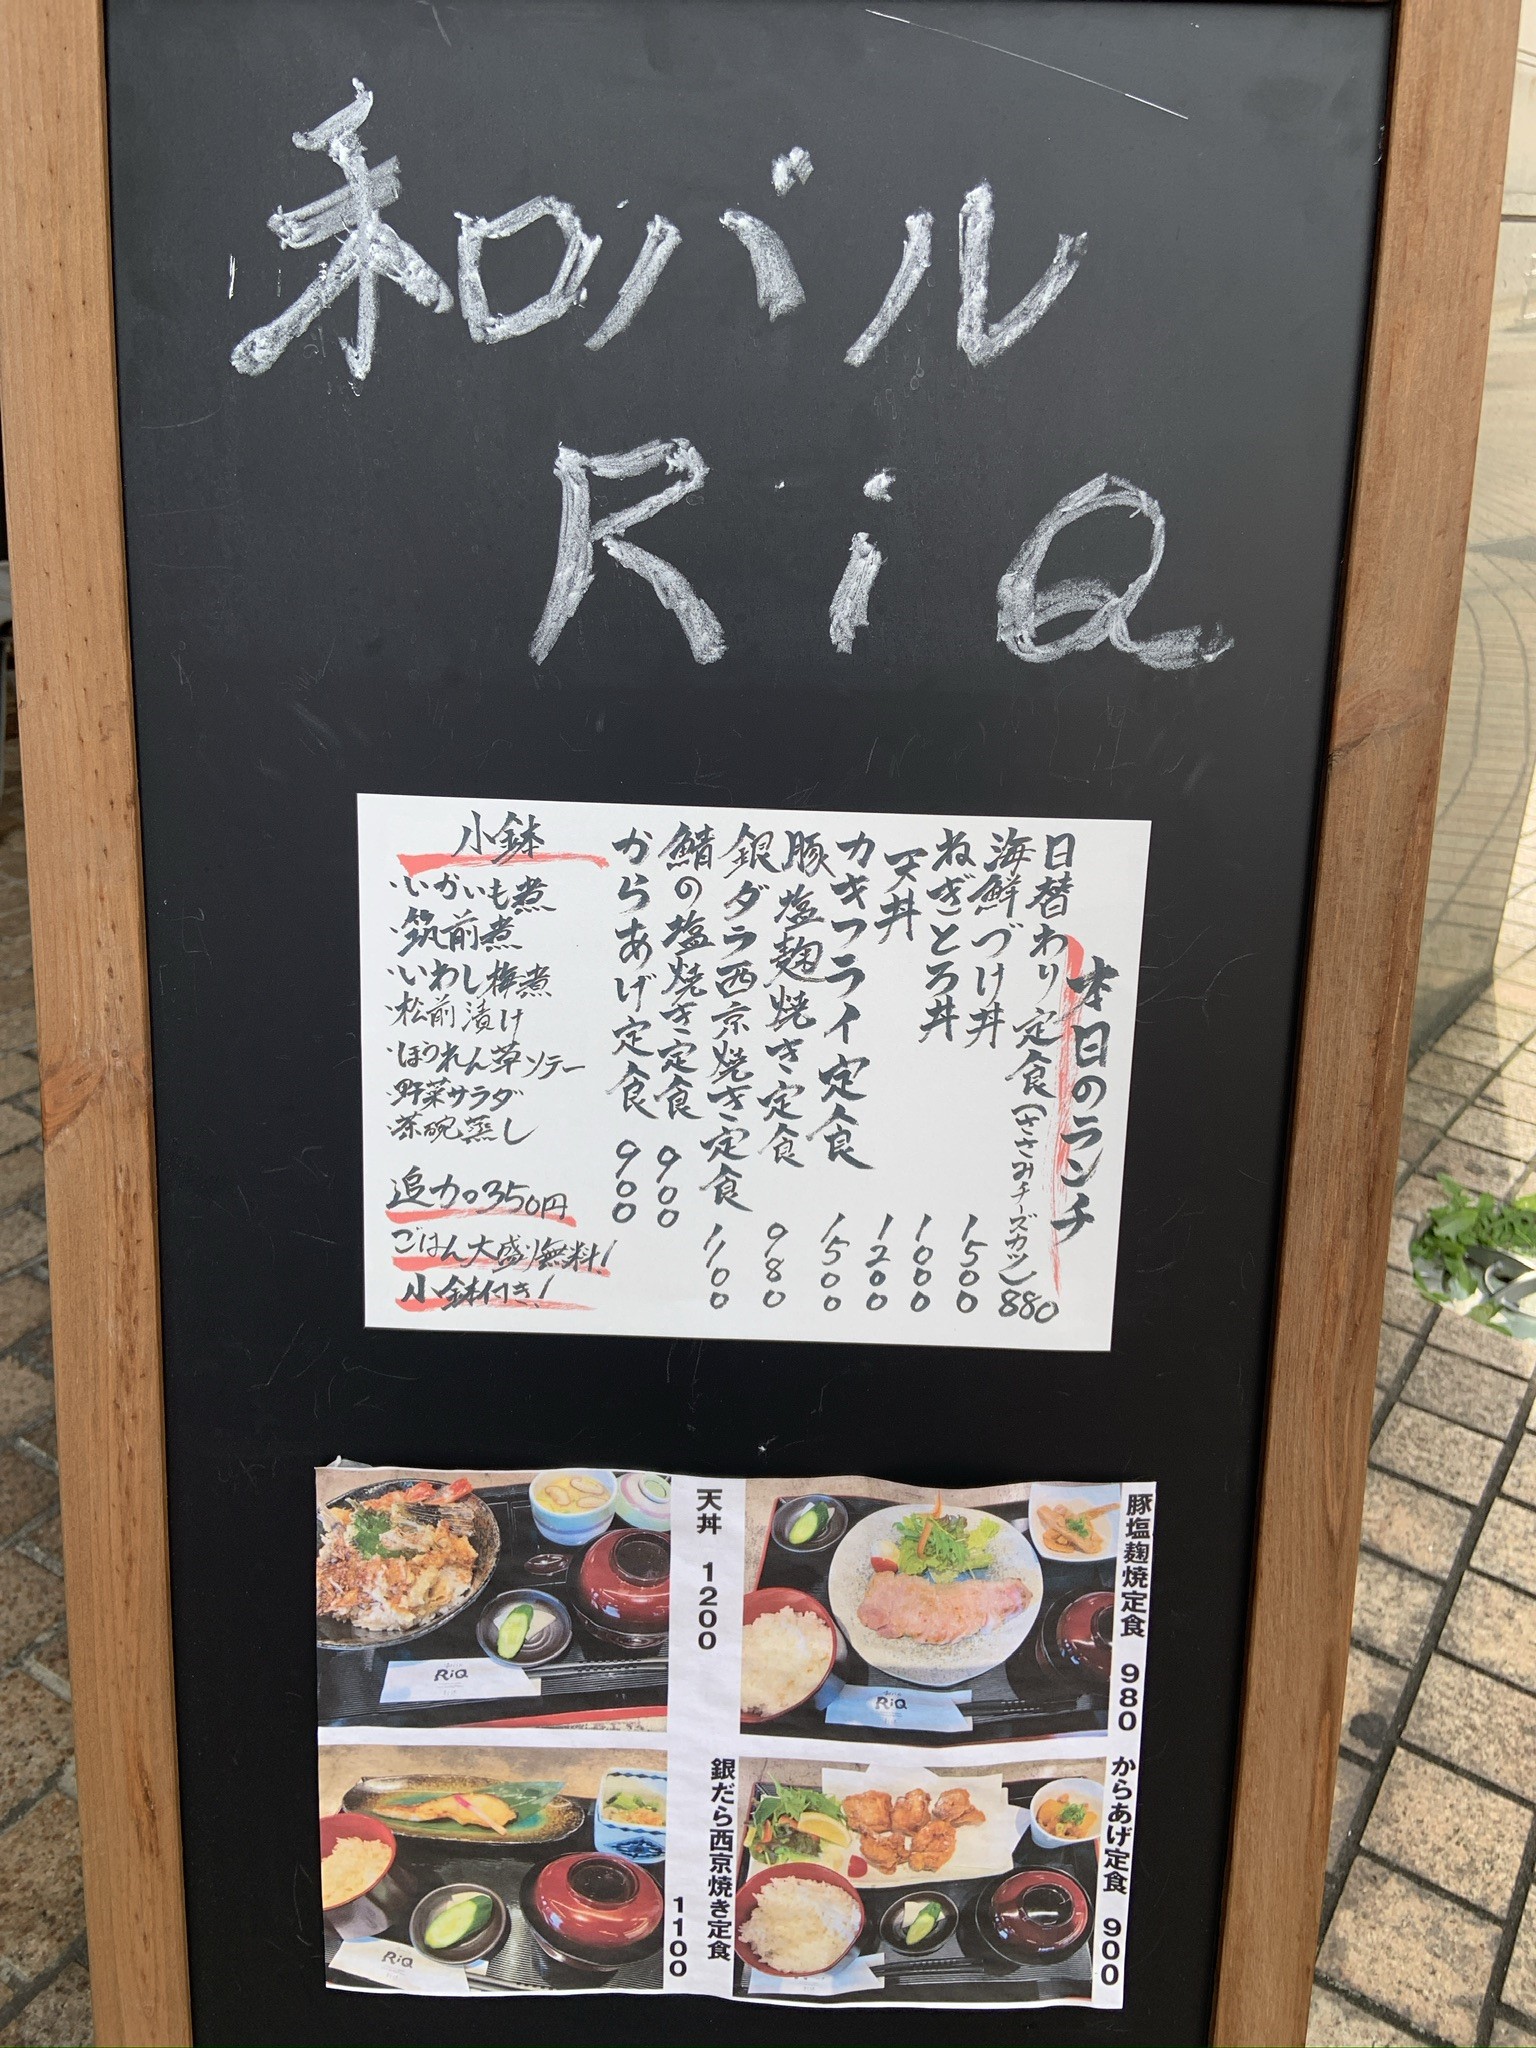 和バル
RiQ
本日のランチ
日替わり定食(ささみチーズカツ)880
海鮮づけ丼 1500
ねぎとろ丼 1000
天丼 1200
カキフライ定食 1500
豚塩麹焼き定食 980
銀ダラ西京焼き定食 1100
鯖の塩焼き定食 900
からあげ定食 900
小鉢
・いかいも煮
・筑前煮
・いわし梅煮
・松前漬け
・ほうれん草ソテー
・野菜サラダ
・茶碗蒸し
追加350円
ごはん大盛り無料!
小鉢付き!
豚塩麹焼定食 980
天丼 1200
からあげ定食 900
銀だら西京焼き定食 1100
RiQ
RiQ
RiQ